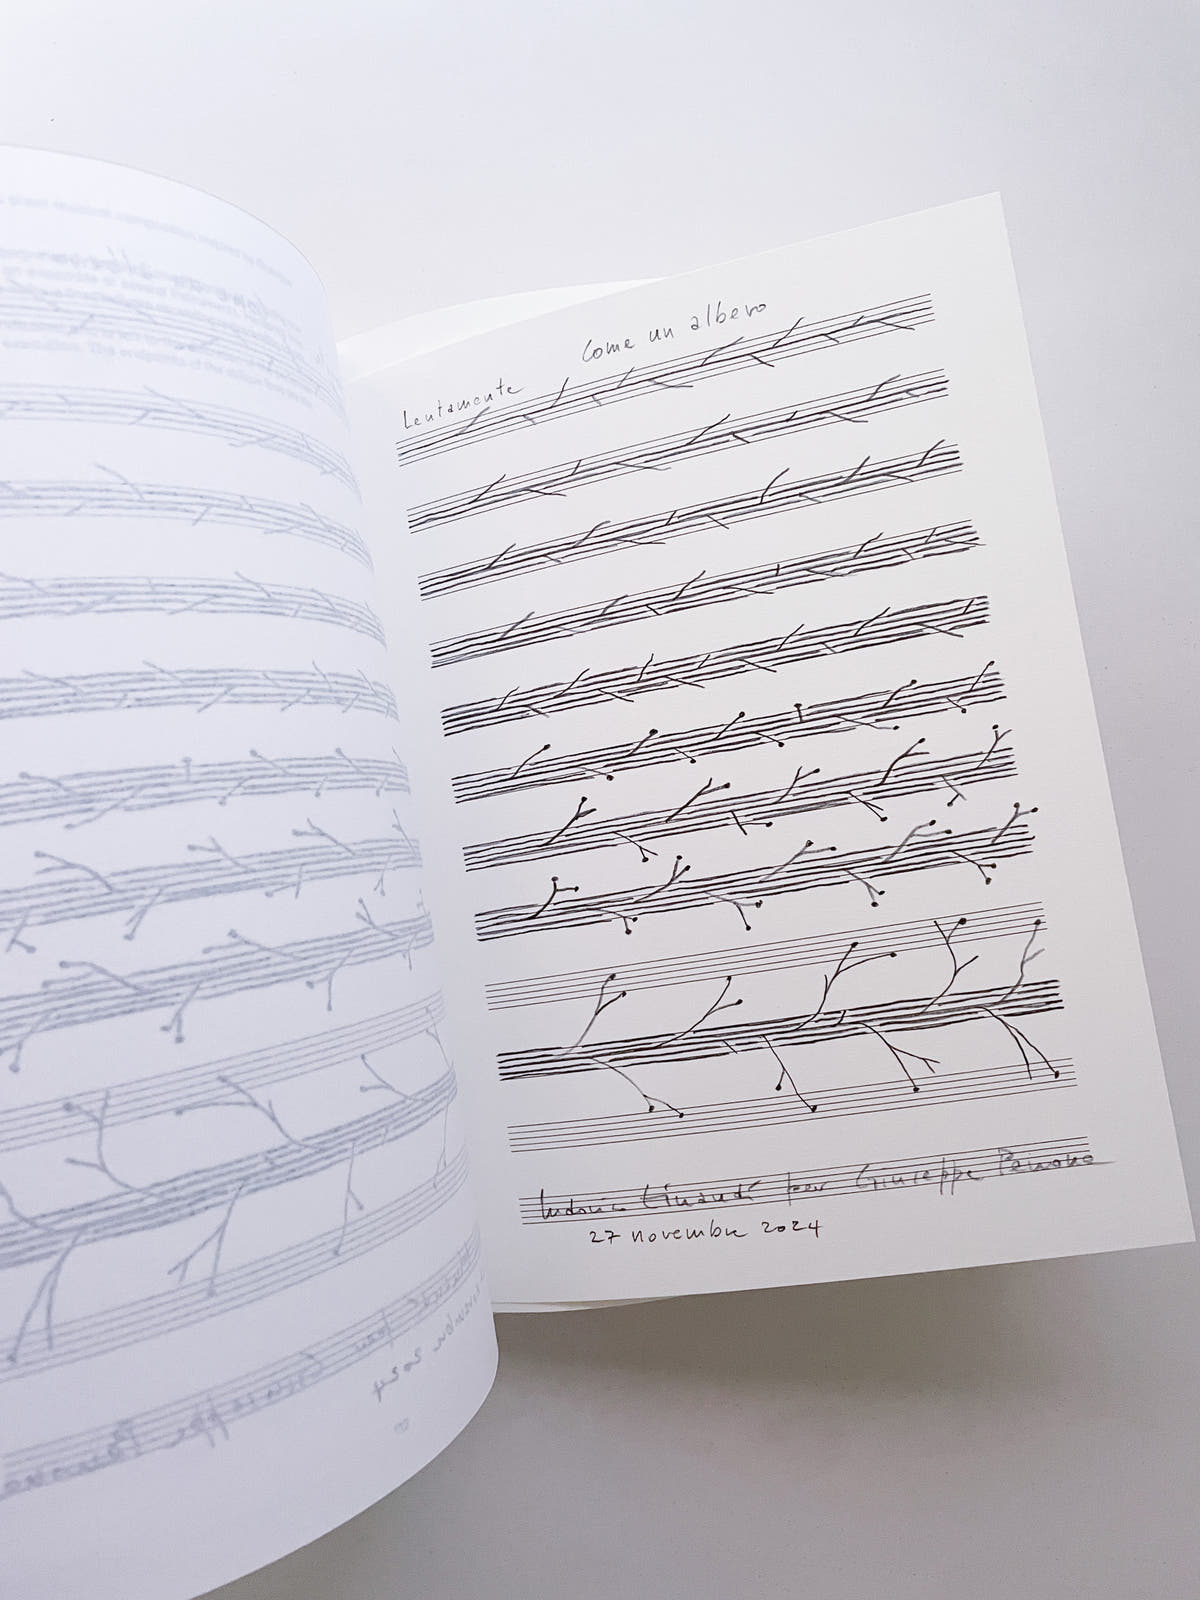 Come un albero
Lentamente
Ludovico Einaudi per Giuseppe Penone
27 novembre 2024